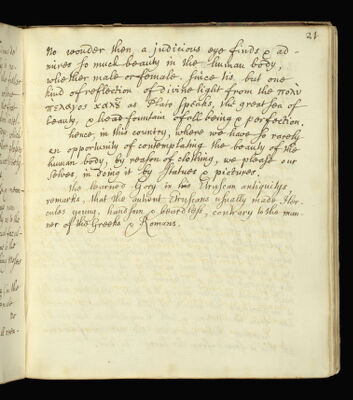 21
No wonder then, a judicious eye finds & ad-
mires so much beauty in the human body,
whether male or female. since tis, but one
kind of reflection of divine light from the πολυ
πελαγος καλȣ as Plato speaks, the great sea of
beauty, & head fountain of all being & perfection.
hence, in this country, where we have so rarely
an opportunity of contemplating the beauty of the
human body, by reason of clothing, we please our
selves, in doing it by statues & pictures.
the learned Gory in his Etruscan antiquitys,
remarks, that the antient Etruscans usually made Her-
cules young, handsom & beardless, contrary to the man-
ner of the Greeks & Romans.